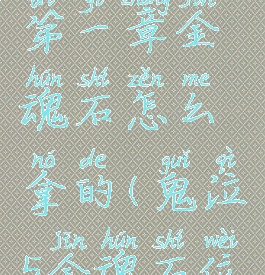 dì yī zhāng jīn
第一章金
hún shí zěn me
魂石怎么
ná de guǐ qì
拿的(鬼泣
jīn hún shí wèi
5金魂石位